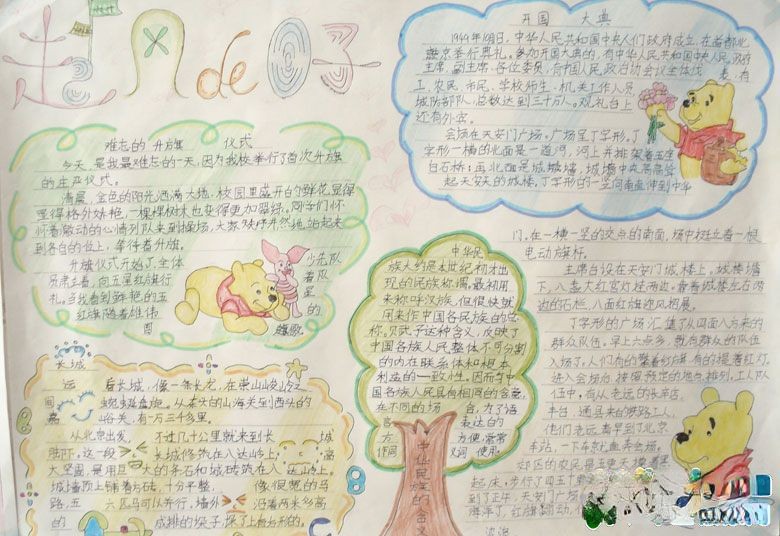 开国 大典
1949年10月1日,中华人民共和国中央人们政府成立,在首都北
京举行典礼。参加开国大典的,有中华人民共和国中央人民政府
主席、副主席、各位委员,有中国人民政协会议全体代表,有
工人、农民、市民、学校师生、机关工作人员
城防部队,总数达到三十万人。观礼台上
还有外宾。
会场在天安门广场。广场呈丁字形。丁
字形一横的北面是一道河,河上并排架着五座
白石桥;再北面是城墙,城墙中央高高耸
起天安门的城楼。丁字形的一竖向南直伸到中华
门。在一横一竖的交点的南面,场中挺立着一根
电动旗杆。
主席台设在天安门城楼上。城楼檐
下,八盏大红宫灯挂两边。靠着城楼左右两
边的石栏,八面红旗迎风招展。
丁字形的广场汇集了从四面八方来的
群众队伍。早上六点多,就有群众的队伍
入场了。人们有的擎着红旗,有的提着红灯。
进入会场后,按照预定的地点排列。工人队
伍中,有从老远的长辛店、
丰台、通县来的铁路工人,
他们老远看早到了北京
车站,一下车就直奔会场。
郊区的农民是五更天
起床,步行了四五十里
到了正午,天安门广场
海洋了,红旗翻动,
难忘的升旗 仪式
今天,是我最难忘的一天,因为我校举行了首次升旗
的庄严仪式。
清晨,金色的阳光洒满大地,校园里盛开的鲜花显得
格外妖艳,一棵棵树木也变得更加翠绿。同学们怀
着激动的心情列队来到操场,大家秩序井然地站
到各自的位上,等待着升旗。
升旗仪式开始了,全体 少先队
员肃立着,向五星红旗行 着队
礼。当我看到鲜艳的五 星
红旗随着雄伟 的
国 歌
中华民
族大约是本世纪初才出
现的民族称谓。最初用
来称呼汉族,但很快就
用来作中国各民族的总
称。见式于这种含义,反映了
中国各族人民整体不可分割
的内在联系体和根本
利益的一致性。因而在中
国各族人民具有相同的含意,
在不同的场 合,为了语
言方 表达的
方 方便,常常
作同 义词 使用
中华民族的含义
长城
远 看长城,像一条长龙,在崇山峻岭之
间 蜿蜒盘旋。从东头的山海关到西头的
嘉 峪关,有一万三千多里。
从北京出发, 不过几十公里就来到长 城
脚下。这一段 长城修筑在八达岭上,
高大坚固,是用巨 大的条石和城砖筑
城墙顶上铺着方砖,十分平整, 像很宽的马
路,五 六匹马可以并行。城墙外 沿有两米多高
的 成排的垛子,垛子上